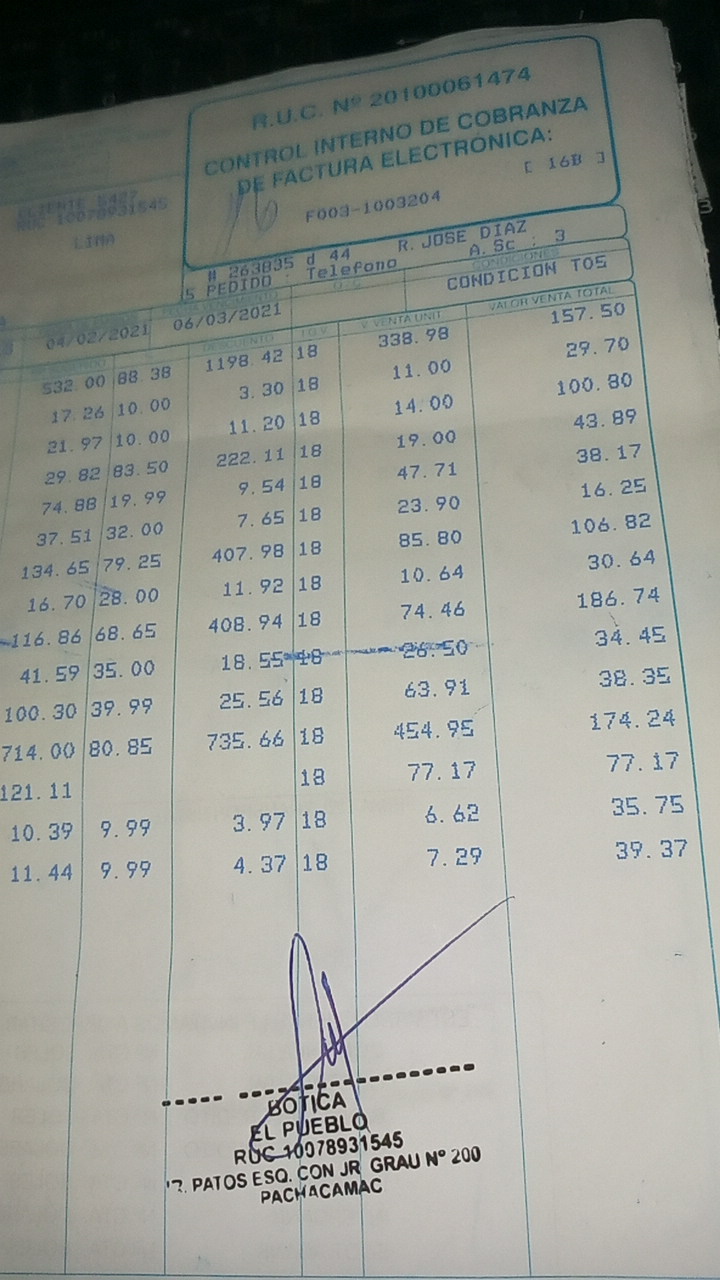 R.U.C. Nº 20100061474
CONTROL INTERNO DE COBRANZA
DE FACTURA ELECTRÓNICA:
[ 16B ]
F003-1003204
RUC 10078931545
LIMA
# 263835 d 44 R. JOSE DIAZ
PEDIDO : Telefono A.Sc : 3
CONDICIONES
CONDICION T05
04/02/2021 06/03/2021
DESCUENTO I.G.V. V. VENTA UNIT. VALOR VENTA TOTAL
532.00 88.38 1198.42 18 338.98 157.50
17.26 10.00 3.30 18 11.00 29.70
21.97 10.00 11.20 18 14.00 100.80
29.82 83.50 222.11 18 19.00 43.89
74.88 19.99 9.54 18 47.71 38.17
37.51 32.00 7.65 18 23.90 16.25
134.65 79.25 407.98 18 85.80 106.82
16.70 28.00 11.92 18 10.64 30.64
116.86 68.65 408.94 18 74.46 186.74
41.59 35.00 18.55 18 26.50 34.45
100.30 39.99 25.56 18 63.91 38.35
714.00 80.85 735.66 18 454.95 174.24
121.11 18 77.17 77.17
10.39 9.99 3.97 18 6.62 35.75
11.44 9.99 4.37 18 7.29 39.37
BOTICA
EL PUEBLO
RUC 10078931545
PATOS ESQ. CON JR. GRAU Nº 200
PACHACAMAC